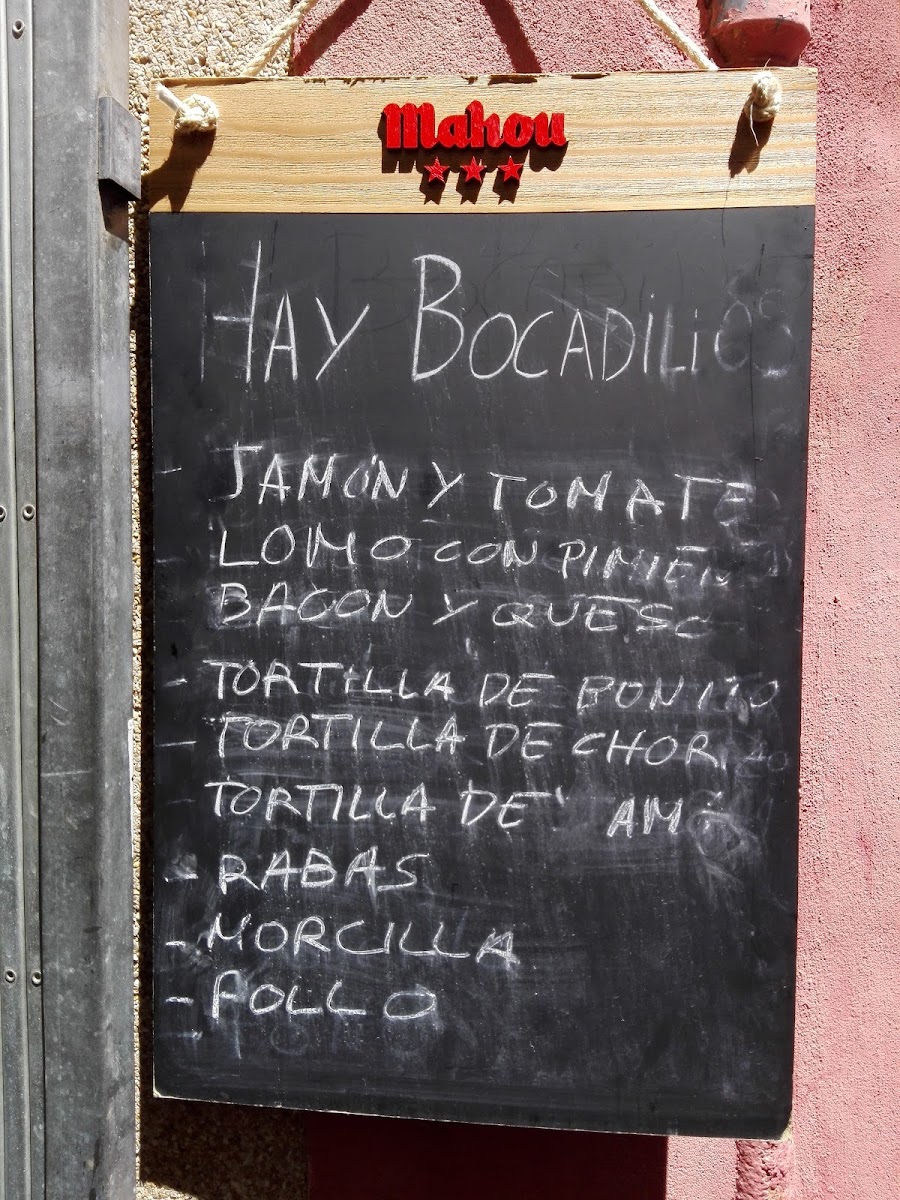 Mahou
HAY BOCADILLOS
- JAMÓN Y TOMATE
- LOMO CON PIMIEN
BACON Y QUESO
- TORTILLA DE BONITO
- TORTILLA DE CHORIZO
- TORTILLA DE JAMÓ
- RABAS
- MORCILLA
- POLLO